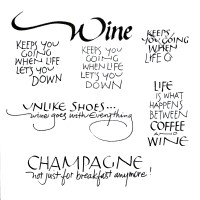 Wine
KEEPS YOU
GOING
WHEN LIFE
LETS YOU
DOWN
KEEPS YOU
GOING
WHEN LIFE
LETS YOU
DOWN
KEEPS
YOU GOING
WHEN
LIFE
LIFE
IS WHAT
HAPPENS
BETWEEN
COFFEE
AND
WINE
UNLIKE SHOES...
wine goes with Everything
CHAMPAGNE
not just for breakfast anymore!